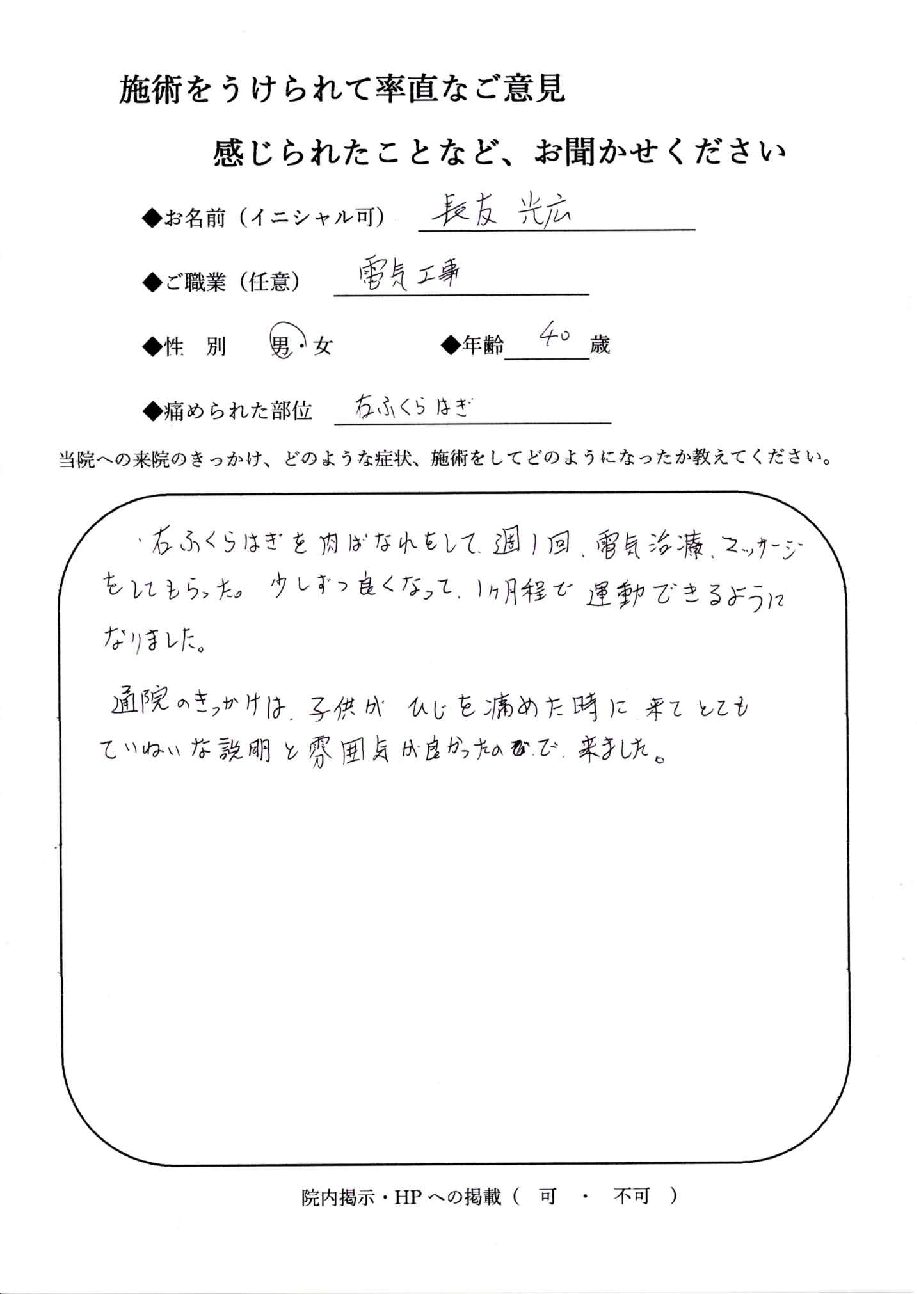 施術をうけられて率直なご意見
感じられたことなど、お聞かせください
◆お名前（イニシャル可） 長友 光広
◆ご職業（任意） 電気工事
◆性 別 男・女 ◆年齢 40 歳
◆痛められた部位 右ふくらはぎ
当院への来院のきっかけ、どのような症状、施術をしてどのようになったか教えてください。
・右ふくらはぎを肉ばなれをして、週1回、電気治療、マッサージ
をしてもらった。少しずつ良くなって、1ヶ月程で運動できるように
なりました。
通院のきっかけは、子供が ひじを痛めた時に来てとても
ていねいな説明と雰囲気が良かったので、来ました。
院内掲示・HPへの掲載（ 可 ・ 不可 ）